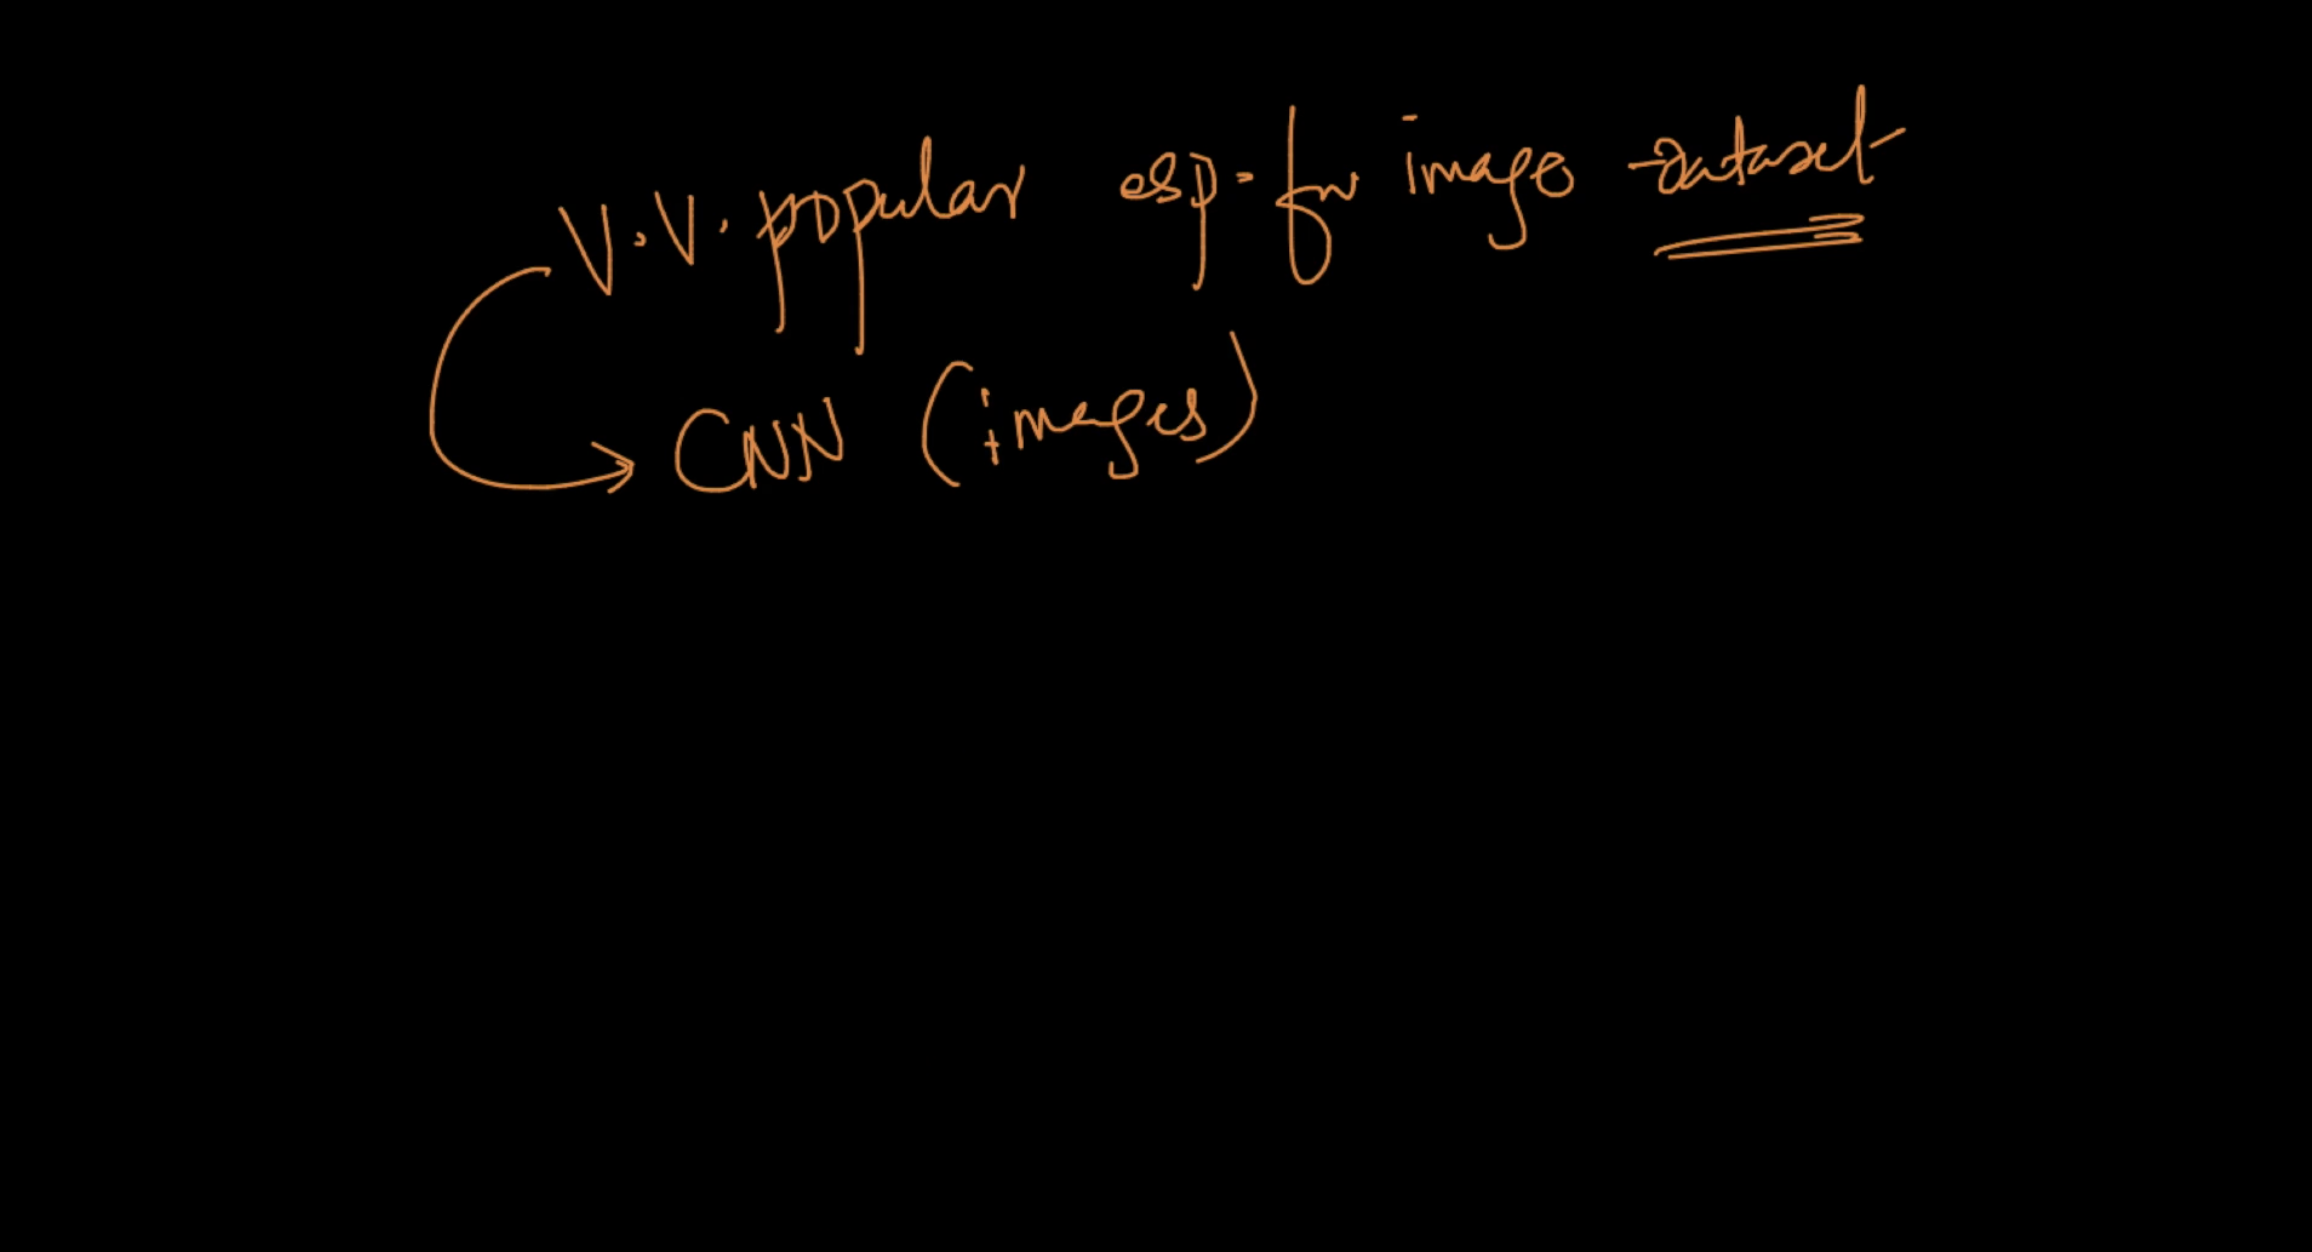 V.V. popular esp. for image dataset
CNN (images)